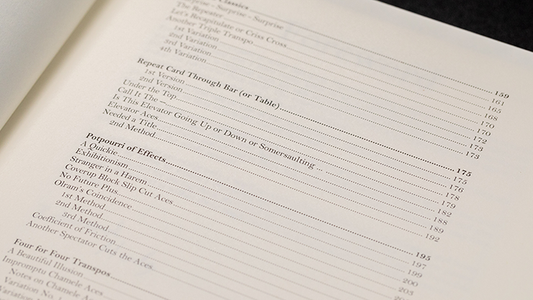 Classics
Surprise - Surprise
The Repeater
Let's Recapitulate or Criss Cross
Another Triple Transpo
1st Variation
2nd Variation
3rd Variation
4th Variation
159
161
165
168
170
170
172
173
173
Repeat Card Through Bar (or Table) 175
1st Version 175
2nd Version 176
Under the Top 178
Call It The – 179
Is This Elevator Going Up or Down or Somersaulting 182
Elevator Aces 188
Needed a Title 189
2nd Method 192
Potpourri of Effects 195
A Quickie 197
Exhibitionism 199
Stranger in a Harem 200
Coverup Block Slip Cut Aces 203
No Future Plus
Olram's Coincidence
1st Method
2nd Method
3rd Method
Coefficient of Friction
Another Spectator Cuts the Aces
Four for Four Transpos
A Beautiful Illusion
Impromptu Chamele Aces
Notes on Chamele Aces
Variation No.